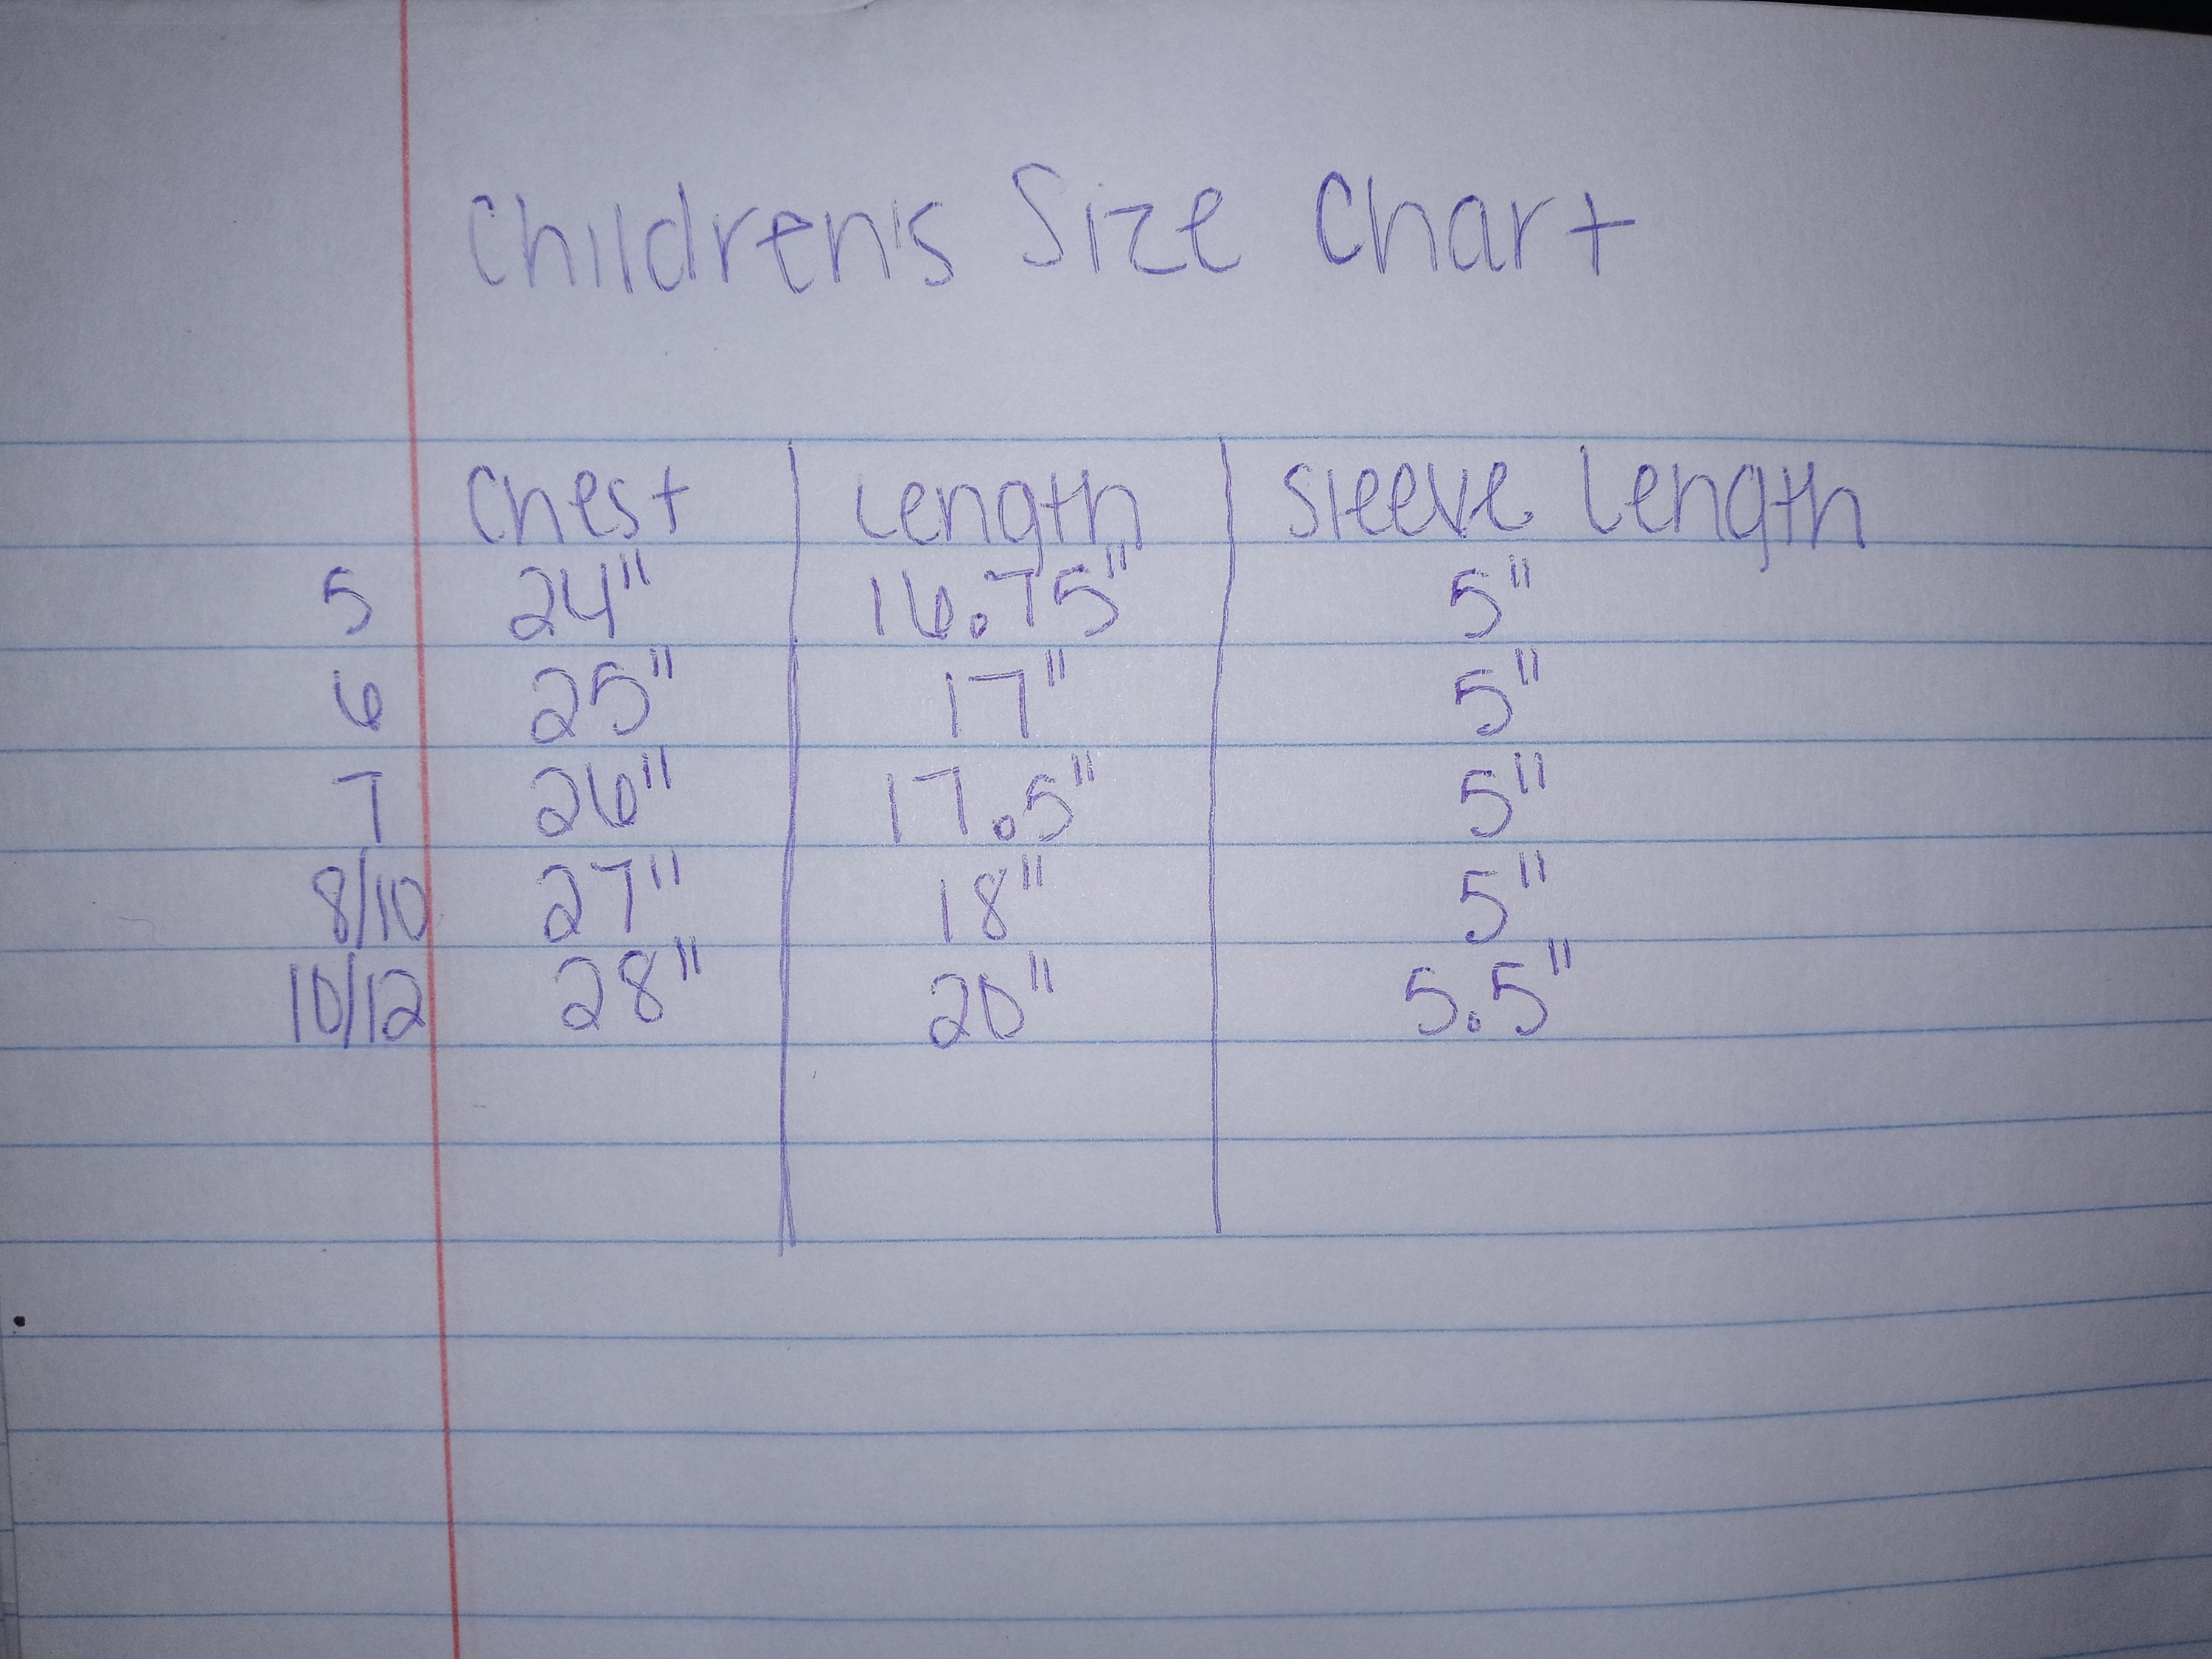 Children's Size Chart
Chest Length Sleeve Length
5 24" 16.75" 5"
6 25" 17" 5"
7 26" 17.5" 5"
8/10 27" 18" 5"
10/12 28" 20" 5.5"